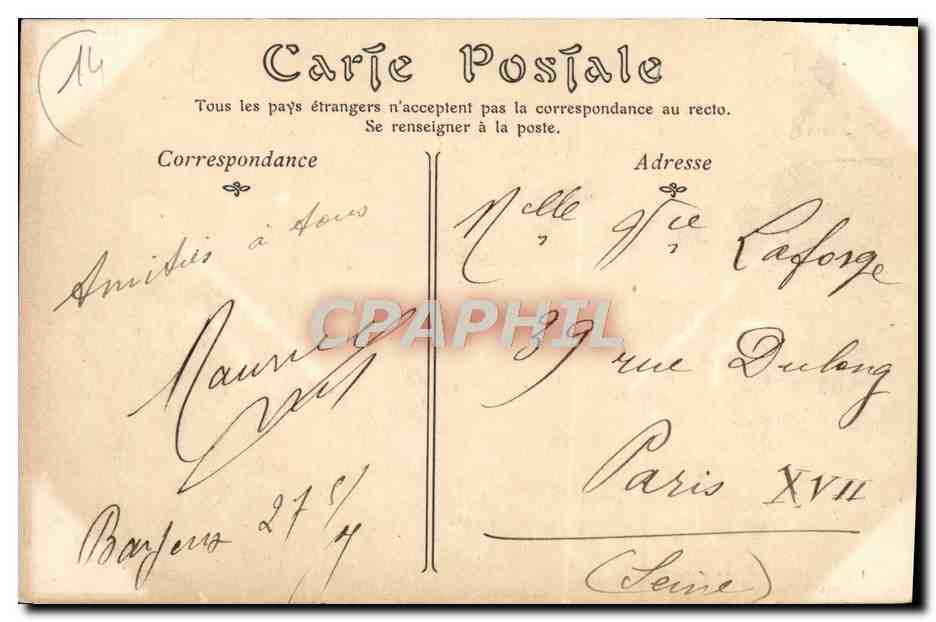 14
Carte Postale
Tous les pays étrangers n'acceptent pas la correspondance au recto.
Se renseigner à la poste.
Correspondance
Amitiés à tous
Maurice
27
Adresse
Melle
Laforge
39 rue Dulong
Paris XVII
(Seine)
CPAPHIL